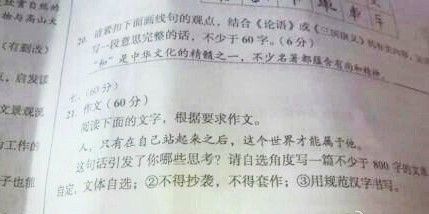 20. 请紧扣下面画线句的观点,结合《论语》或《三国演义》
写一段意思完整的话,不少于60字。(6分)
"和"是中华文化的精髓之一,不少名著都蕴含有
七、(60分)
21. 作文(60分)
阅读下面的文字,根据要求作文。
人,只有在自己站起来之后,这个世界才能属于他。
这句话引发了你哪些思考?请自选角度写一篇不少于800字的文章
自定,文体自选;②不得抄袭,不得套作;③用规范汉字书写。
物与高山大
(有删改)
,启发读
文景观
工作的
子也能